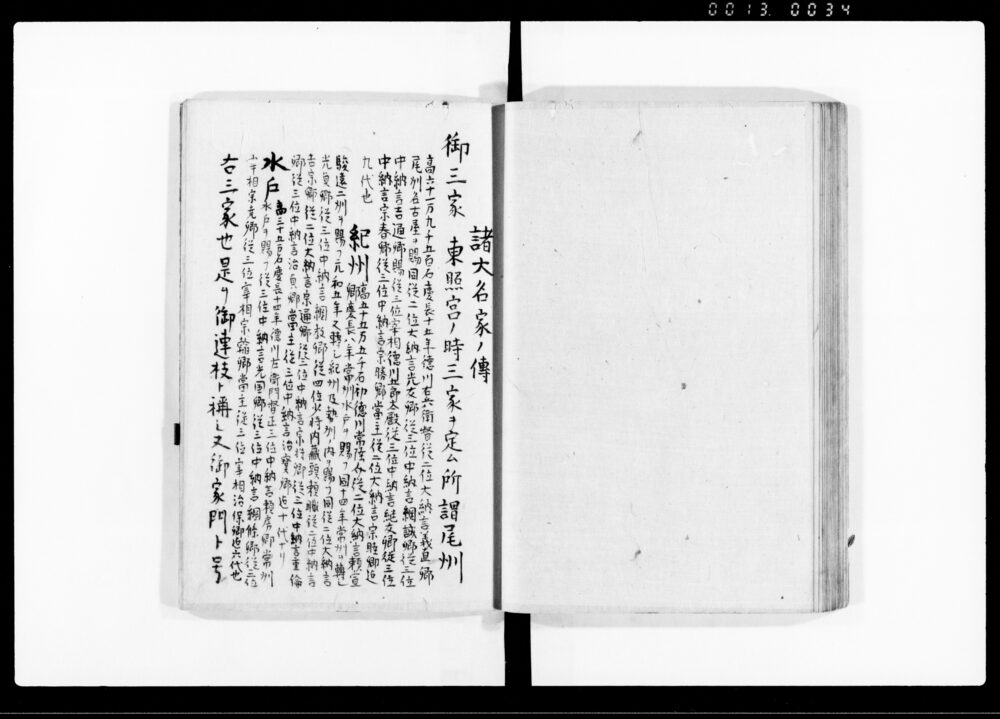 0013. 0034
諸大名家ノ傳
御三家 東照宮ノ時三家ヲ定ム所謂尾州
高六十一万九千五百石慶長十五年徳川右兵衛督従二位大納言義直卿
尾州名古屋ヲ賜同従二位大納言光友卿従三位中納言綱誠卿従三位
中納言吉通卿賜従三位宰相徳川五郎太殿従三位中納言継友卿従三位
中納言宗春卿従三位中納言宗勝卿當主従二位大納言宗睦卿迠
九代也
紀州 高五十五万五千石初徳川常陸介従二位大納言頼宣
卿慶長八年常州水戸ヲ賜フ同十四年常州ヲ轉シ
駿遠二州ヲ賜フ元和五年又轉シ紀州及勢州ノ内ヲ賜フ同従二位大納言
光貞卿従三位中納言綱教卿従四位少将内蔵頭頼職従二位中納言
吉宗卿従二位大納言宗直卿従三位中納言宗将卿従三位中納言重倫
卿従三位中納言治貞卿當主従三位中納言治寳卿迠十代ナリ
水戸 高三十五万石慶長十四年徳川左衛門督正三位中納言頼房卿常州
水戸ヲ賜フ従三位中納言光圀卿従三位中納言綱條卿従三位
宰相宗堯卿従三位宰相宗翰卿當主従三位宰相治保卿迠六代也
右三家也是ヲ御連枝ト稱シ又御家門ト号